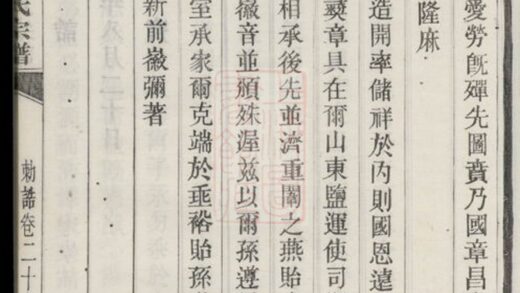 愛勞旣殫先圖賁乃國章昌
隆麻
造開率儲祥於內則國恩遠
彞章具在爾山東鹽運使司
相承後先並濟重闈之燕貽
徽音並頒殊渥茲以爾孫遵
室承家爾克端於垂裕貽孫
新前徽彌著
氏宗譜
勅誥卷二十